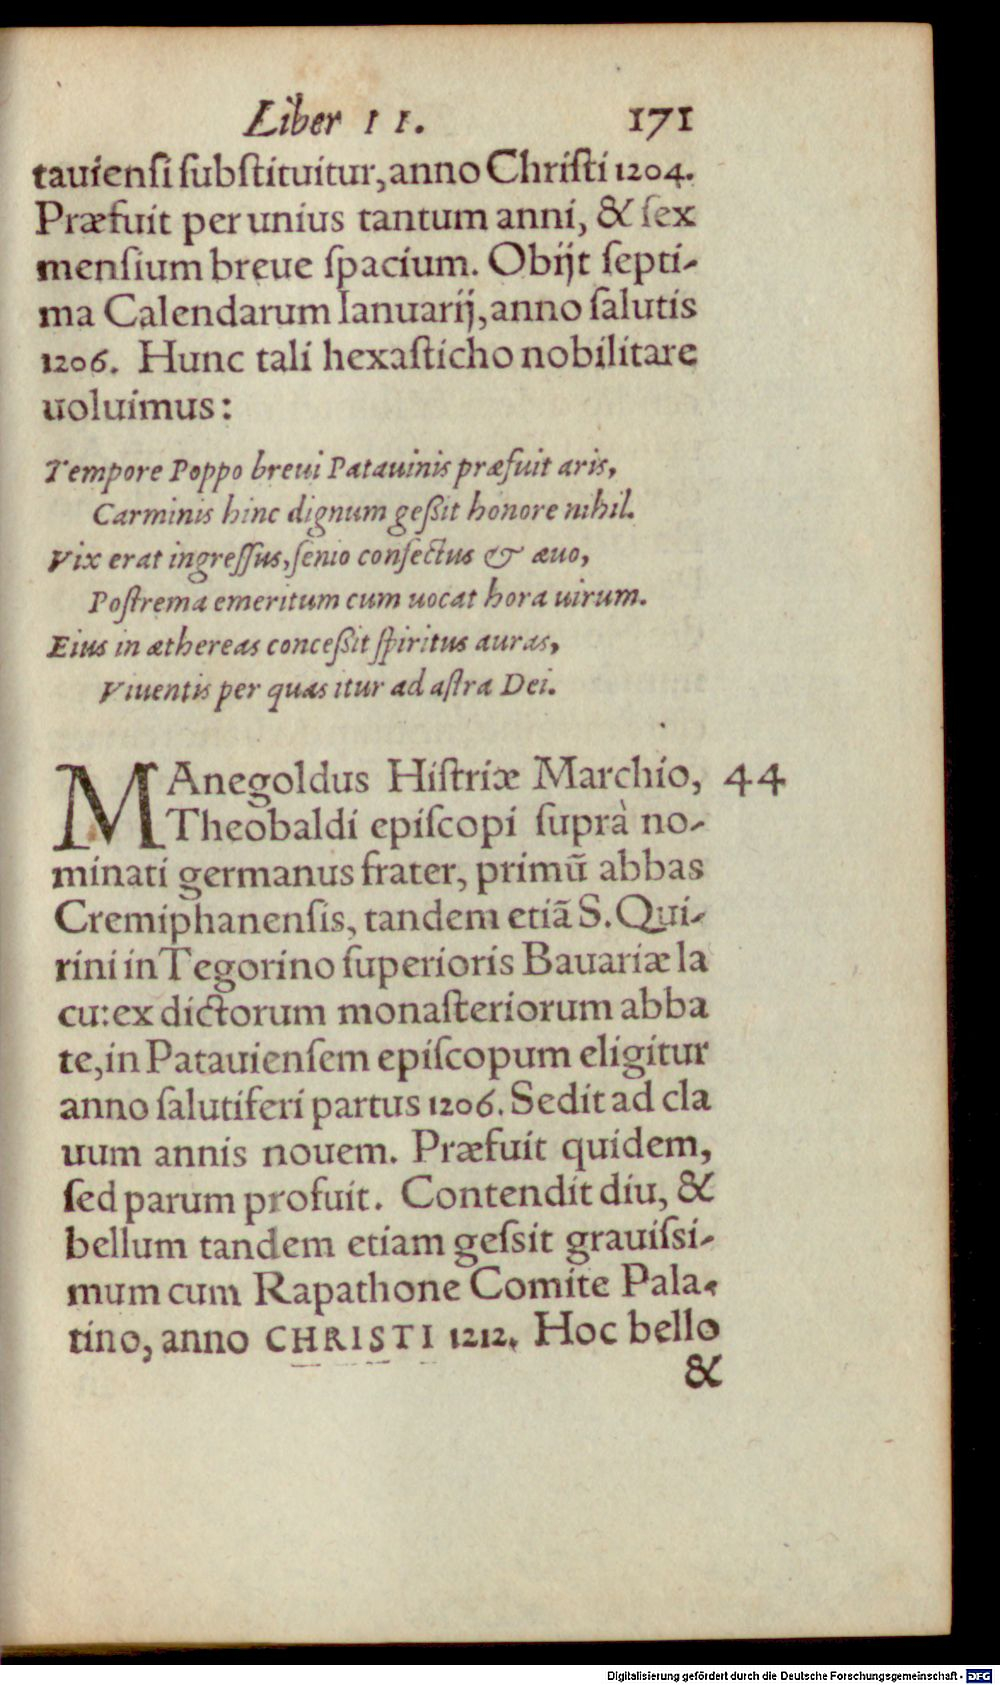 Liber II. 171
tauiensi substituitur, anno Christi 1204.
Præfuit per unius tantum anni, & sex
mensium breue spacium. Obijt septi-
ma Calendarum Ianuarij, anno salutis
1206. Hunc tali hexasticho nobilitare
uoluimus:
Tempore Poppo breui Patauinis præfuit aris,
Carminis hinc dignum geßit honore nihil.
Vix erat ingressus, senio confectus & æuo,
Postrema emeritum cum uocat hora uirum.
Eius in æthereas conceßit spiritus auras,
Viuentis per quas itur ad astra Dei.
MAnegoldus Histriæ Marchio, 44
Theobaldi episcopi suprà no-
minati germanus frater, primũ abbas
Cremiphanensis, tandem etiã S. Qui-
rini in Tegorino superioris Bauariæ la
cu: ex dictorum monasteriorum abba
te, in Patauiensem episcopum eligitur
anno salutiferi partus 1206. Sedit ad cla
uum annis nouem. Præfuit quidem,
sed parum profuit. Contendit diu, &
bellum tandem etiam gessit grauissi-
mum cum Rapathone Comite Pala-
tino, anno CHRISTI 1212. Hoc bello
&
Digitalisierung gefördert durch die Deutsche Forschungsgemeinschaft - DFG